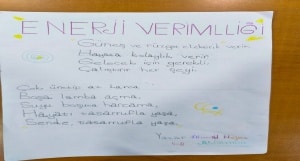 ENERJİ VERİMLLİĞİ
Güneş ve rüzgar elektrik verir
Hayata kolaylık verir
Gelecek için gerekli
Çalıştırır her şeyi
Çok enerji az harca
Boşa lamba açma,
Suyu boşuna harcama,
Hayatı tasarrufla yaşa,
Sende tasarrufla yaşa.